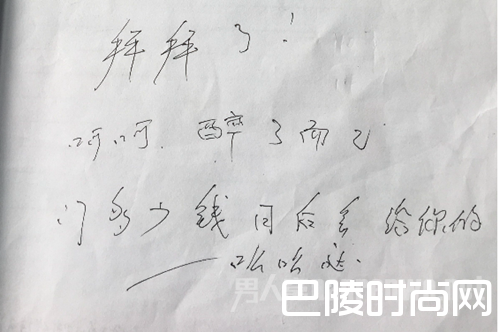 拜拜了！
呵呵.醉了而已
门多少钱日后会给你的
——哈哈哒.
男人
巴陵时尚网